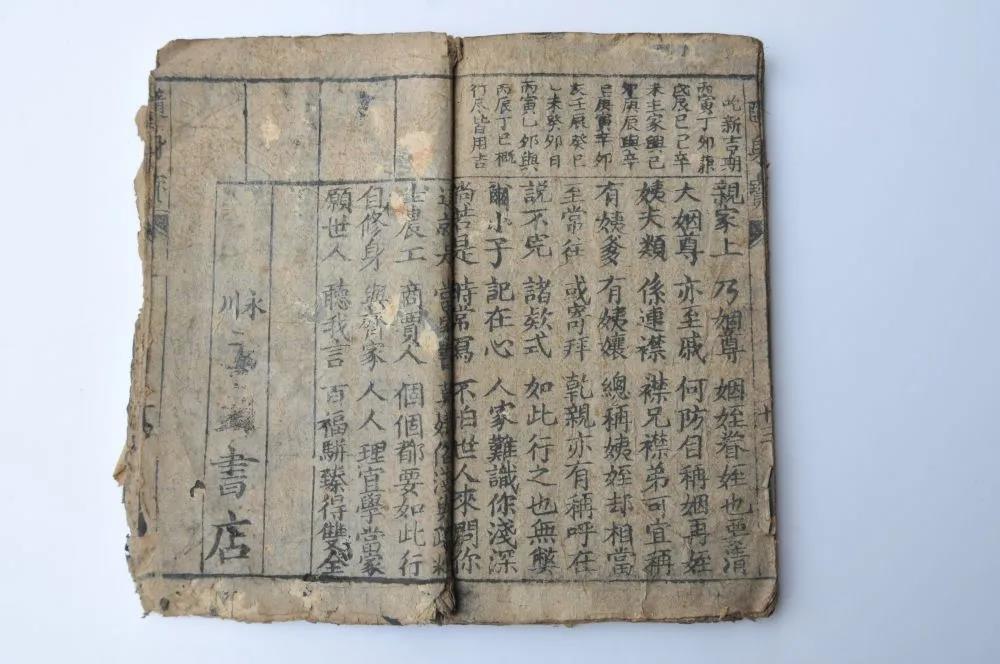 吃新吉期
丙寅丁卯兼
戊辰己巳辛
庚辰與辛
巳庚寅辛卯
亥壬辰癸巳
乙未癸卯日
丙寅乙卯與
丙辰丁巳概
行尽皆用吉
親家上 乃姻尊 姻姪眷姪也要
大姻尊 亦至戚 何防自稱姻再姪
姨夫類 係連襟 襟兄襟弟可宜稱
有姨爹 有姨孃 總稱姨姪却相當
至常往 或寄拜 乾親亦有稱呼在
說不完 諸欵式 如此行之也無弊
爾小子 記在心 人家難識你淺深
倘若是 時常寫 不怕世人來問你
士農工 商賈人 個個都要如此行
自修身 與齊家 人人理宜學當家
願世人 聽我言 百福駢臻得雙全
永川
書店
十三